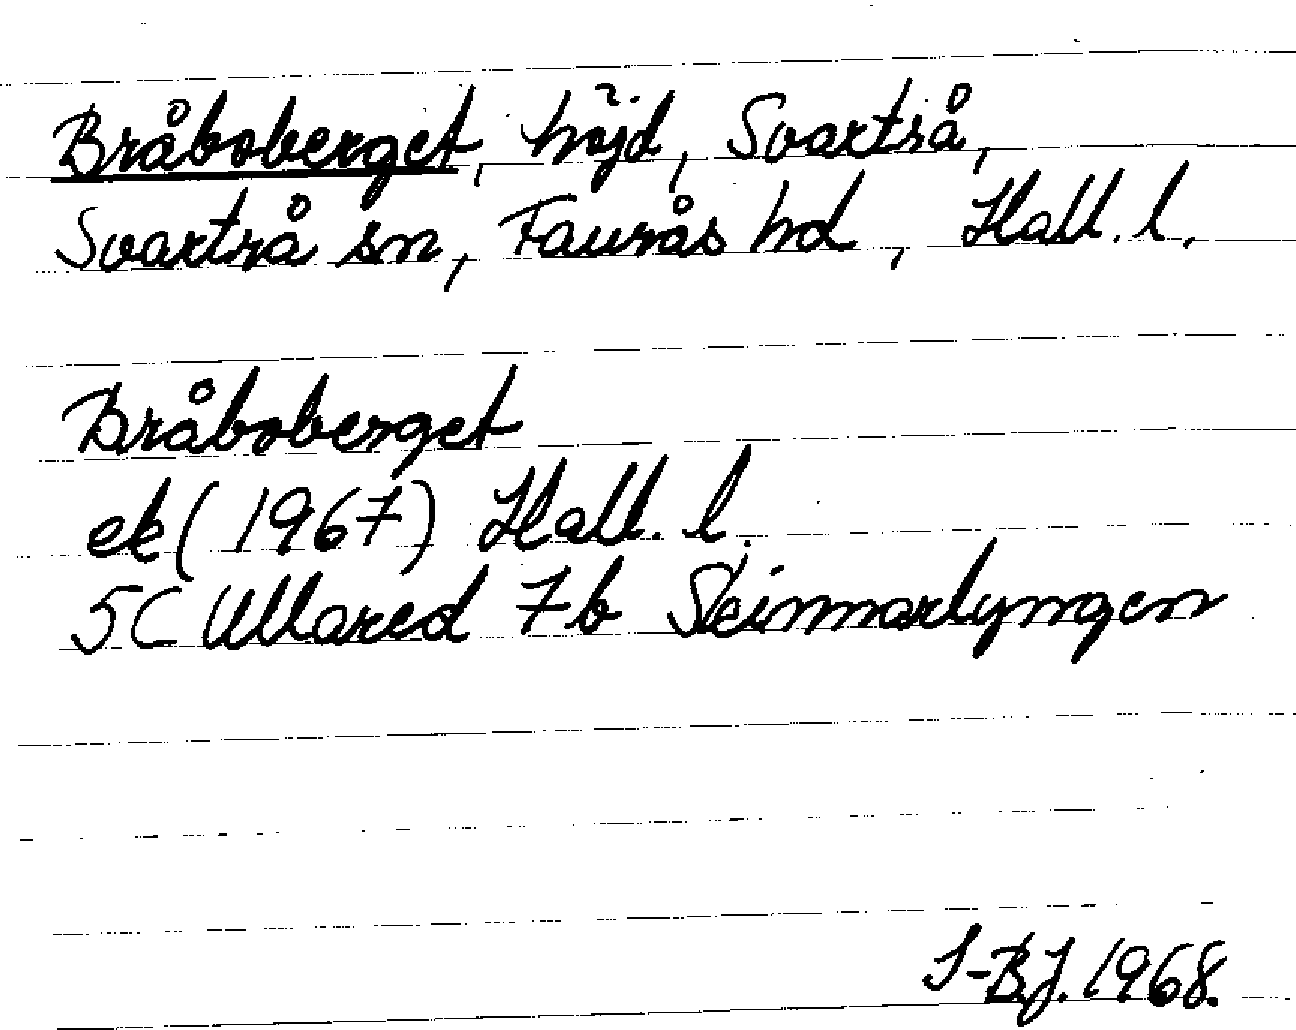 Bråboberget, höjd, Svartrå,
Svartrå sn, Faurås hd, Hall. l.
Bråboberget
ek (1967) Hall. l.
5C Ullared 7b Skinnarlyngen
S-BJ. 1968.